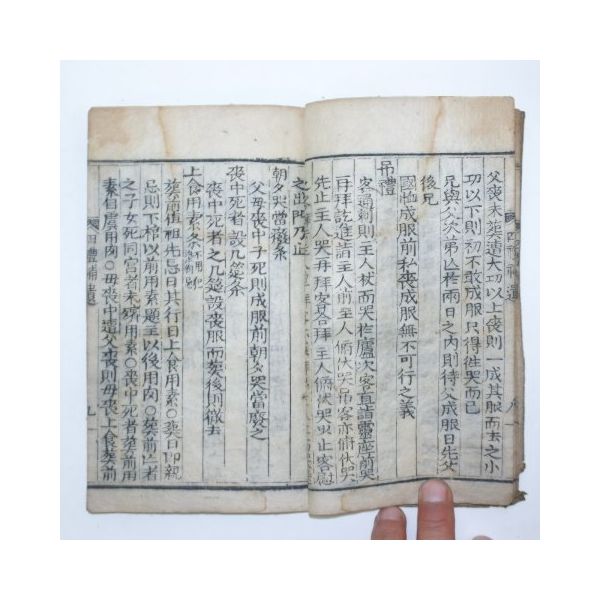 父喪未葬遭大功以上喪則一成其服而去之小
功以下則初不敢成服只得徃哭而已
兄與父次第亾於兩日之內則待父成服日先父
後兄
國恤成服前私喪成服無不可行之義
吊禮
客通刺則主人杖而哭於廬次客直詣靈座前哭
再拜訖進詣主人前主人俯伏哭吊客亦俯伏哭
先止主人哭再拜客答拜主人俯伏哭止客慰
之出門乃止
朝夕哭當廢条
父母喪中子死則成服前朝夕哭當廢之
喪中死者設几筵条
喪中死者之几筵設喪服而葬後則徹去
上食用素条
葬前値祖先忌日其行日上食用素〇葬日即親
忌則下棺以前用素題主以後用肉〇葬前
之子女死同宮者未殯用素〇喪中死者葬前用
素自虞用肉〇母喪中遭父喪則母喪上食葬前
四禮補遺
四禮補遺
八
九